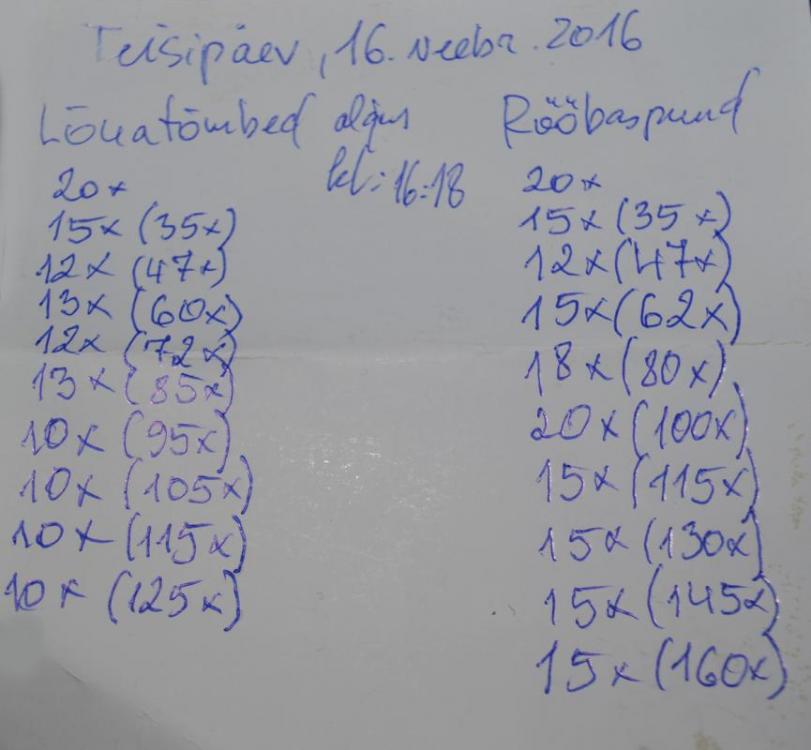 Teisipäev, 16. veebr. 2016
Lõuatõmbed algus
kl: 16:18
20x
15x (35x)
12x (47x)
13x (60x)
12x (72x)
13x (85x)
10x (95x)
10x (105x)
10x (115x)
10x (125x)
Rööbaspuud
20x
15x (35x)
12x (47x)
15x (62x)
18x (80x)
20x (100x)
15x (115x)
15x (130x)
15x (145x)
15x (160x)